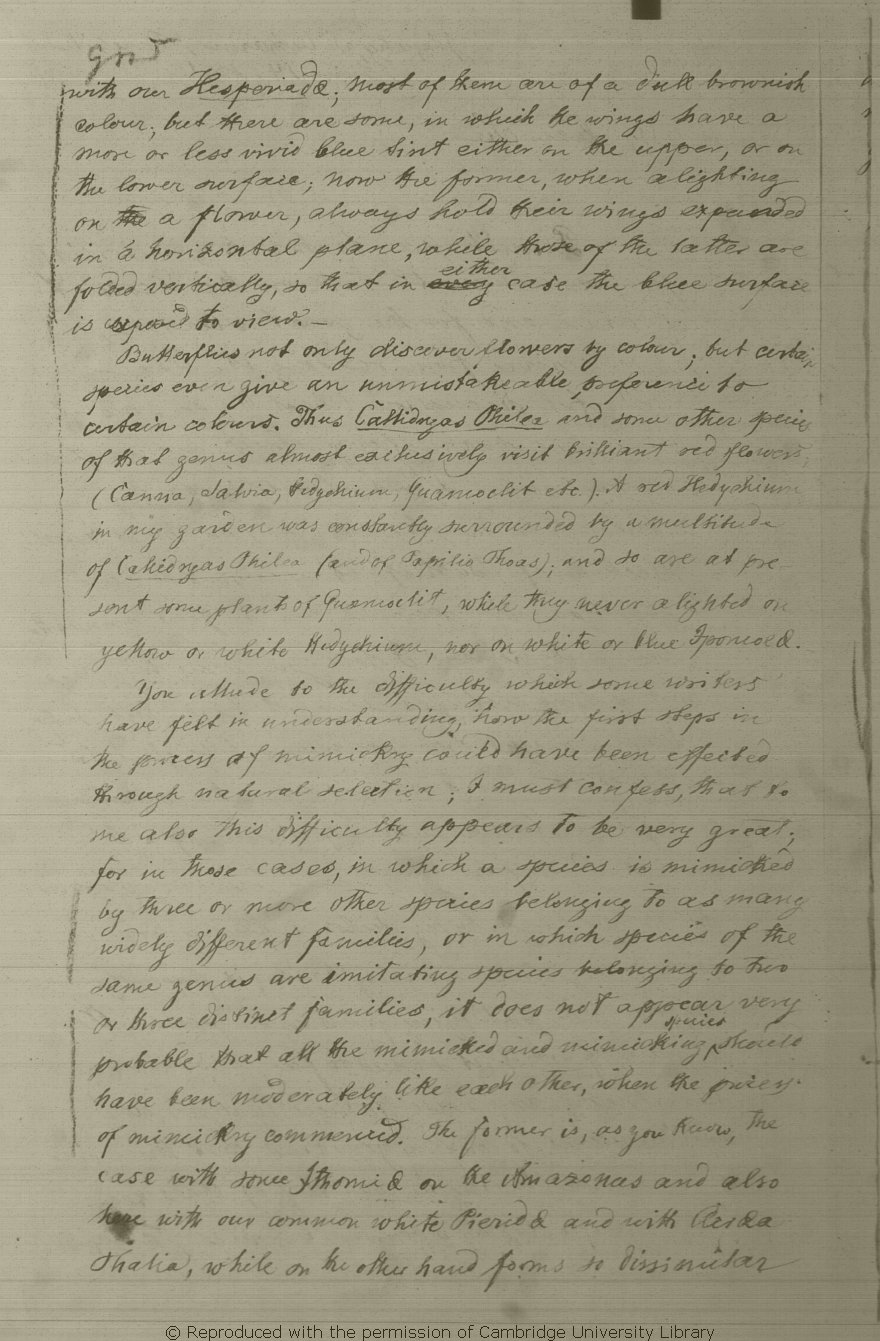 with our Hesperiadæ; most of them are of a dull brownish
colour; but there are some, in which the wings have a
more or less vivid blue tint either on the upper, or on
the lower surface; now the former, when alighting
on the a flower, always hold their wings expanded
in a horizontal plane, while those of the latter are
folded vertically, so that in every either case the blue surface
is exposed to view.—
Butterflies not only discover flowers by colour; but certain
species even give an unmistakeable preference to
certain colours. Thus Callidryas Philea and some other species
of that genus almost exclusively visit brilliant red flowers,
(Canna, Salvia, Hedychium, Quamoclit etc.). A red Hedychium
in my garden was constantly surrounded by a multitude
of Callidryas Philea (and of Papilio Thoas); and so are at pre
sent some plants of Quamoclit, while they never alighted on
yellow or white Hedychium, nor on white or blue Ipomoeæ.
You allude to the difficulty which some writers
have felt in understanding, how the first steps in
the process of mimickry could have been effected
through natural selection; I must confess, that to
me also this difficulty appears to be very great;
for in those cases, in which a species is mimicked
by three or more other species belonging to as many
widely different families, or in which species of the
same genus are imitating species belonging to two
or three distinct families, it does not appear very
probable that all the mimicked and mimicking species should
have been moderately like each other, when the process
of mimickry commenced. The former is, as you know, the
case with some Ithomiæ on the Amazonas and also
here with our common white Pieridæ and with Acræa
Thalia, while on the other hand forms so dissimilar
© Reproduced with the permission of Cambridge University Library